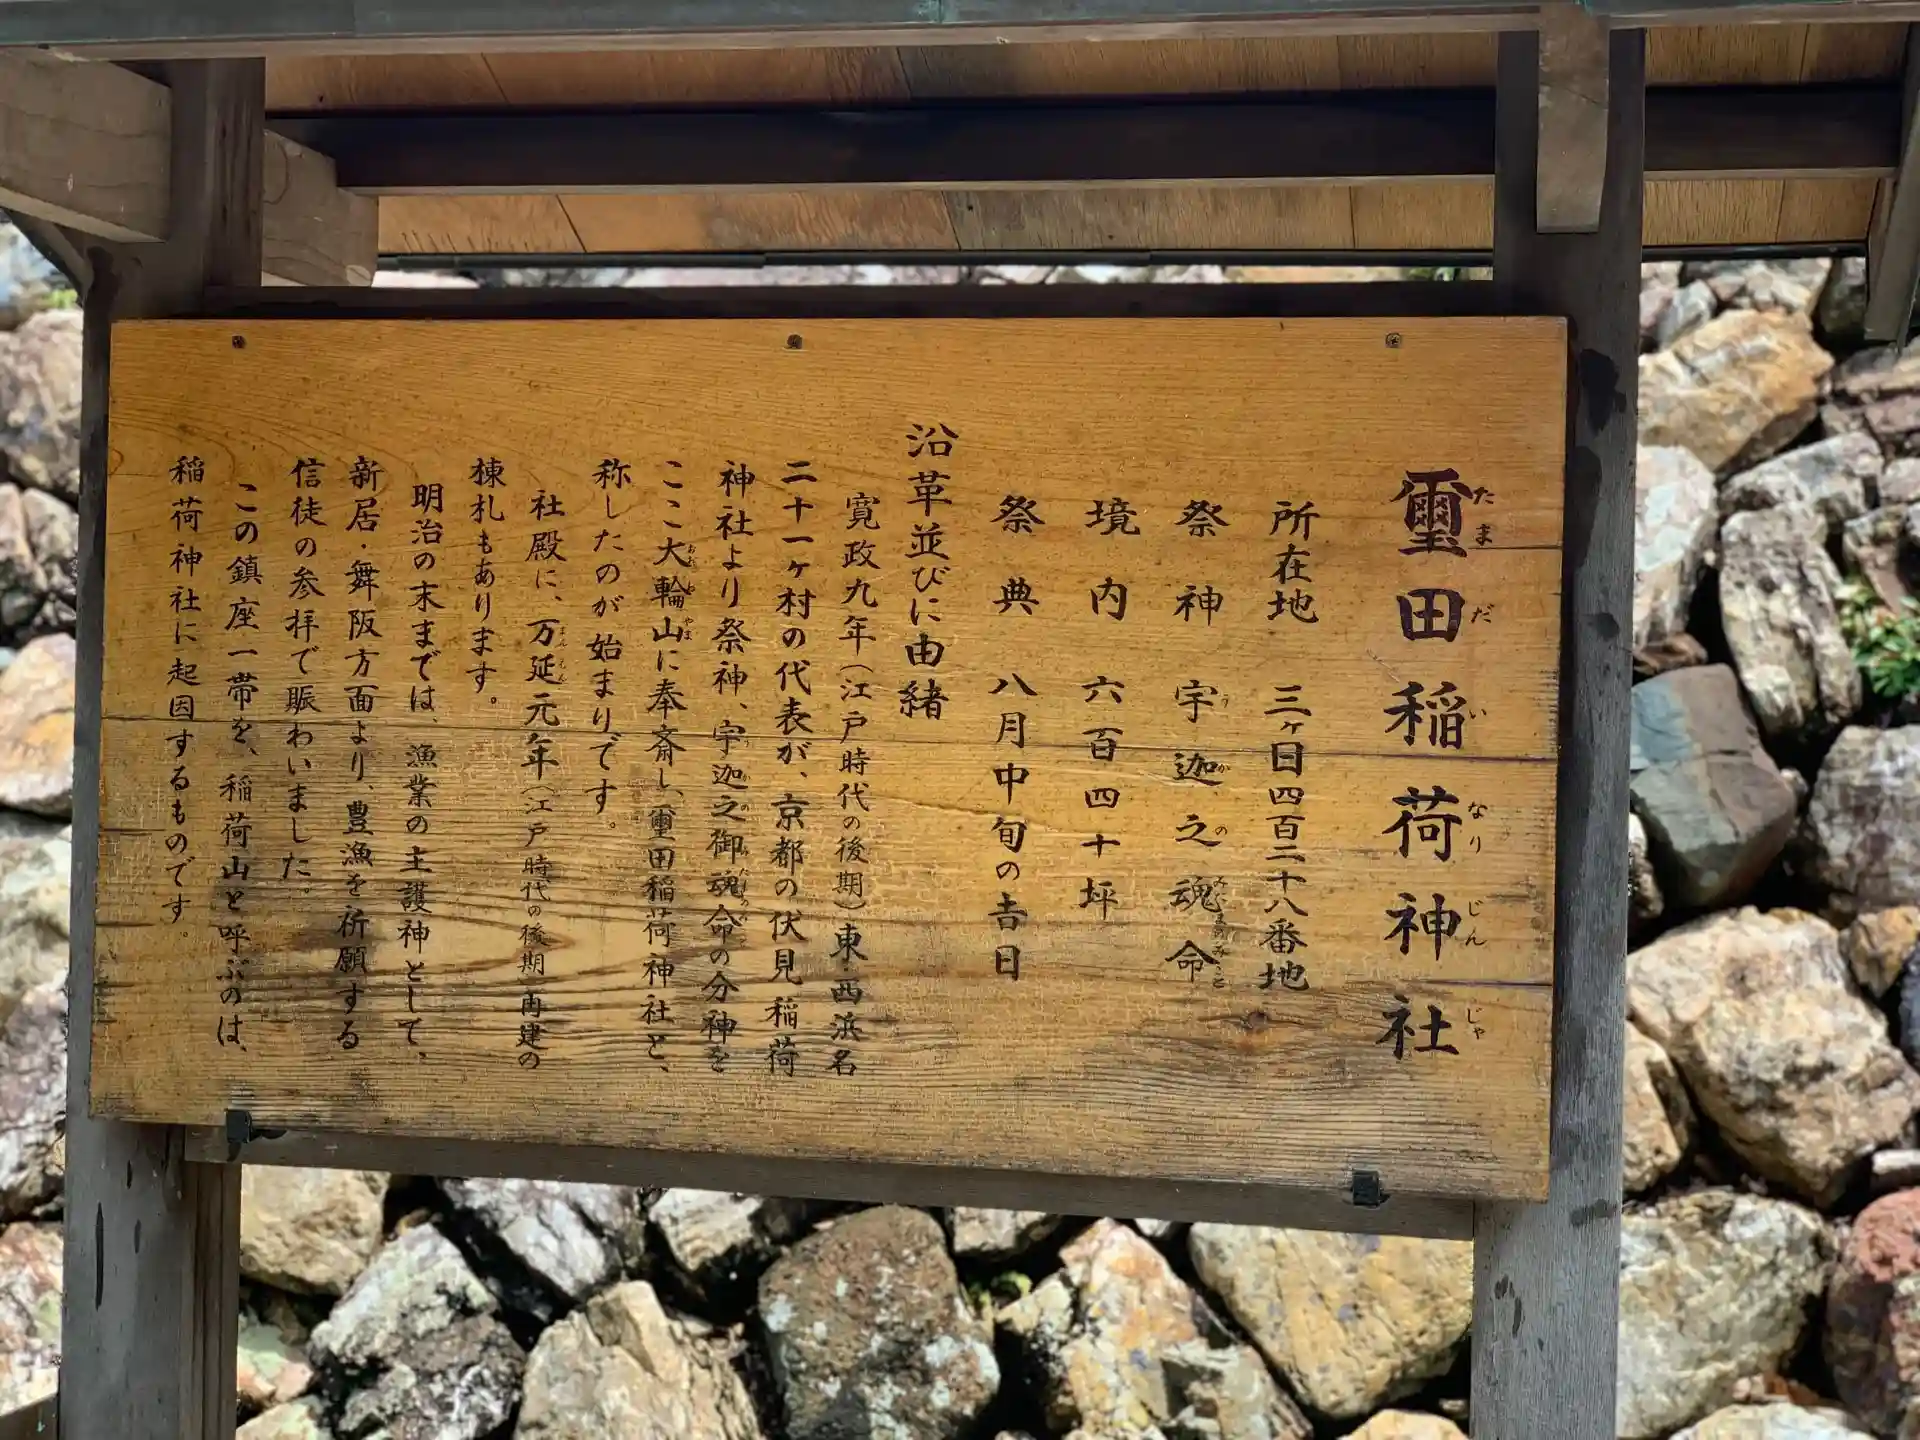 璽田稲荷神社
所在地　三ヶ日四百二十八番地
祭神　宇迦之魂命
境内　六百四十坪
祭典　八月中旬の吉日
沿革並びに由緒
寛政九年（江戸時代の後期）東・西浜名
二十一ヶ村の代表が、京都の伏見稲荷
神社より祭神、宇迦之御魂命の分神を
ここ大輪山に奉斎し、璽田稲荷神社と、
称したのが始まりです。
社殿に、万延元年（江戸時代の後期）再建の
棟札もあります。
明治の末までは、漁業の主護神として、
新居・舞阪方面より、豊漁を祈願する
信徒の参拝で賑わいました。
この鎮座一帯を、稲荷山と呼ぶのは、
稲荷神社に起因するものです。